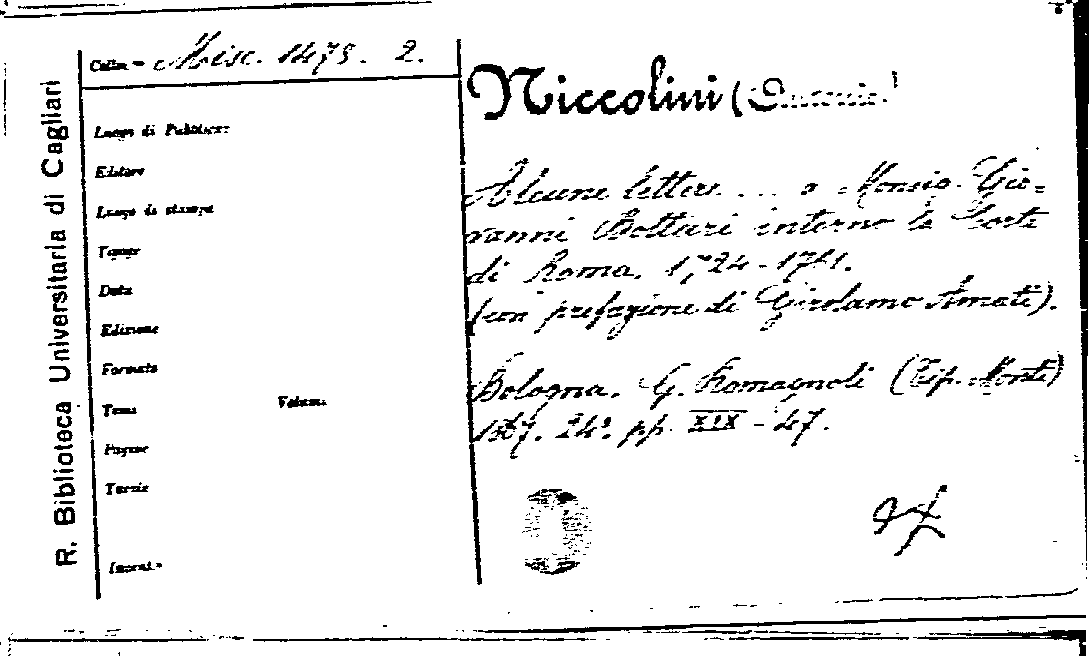 R. Biblioteca Universitaria di Cagliari
Colloc. Misc. 1479. 2.
Luogo di Pubblicaz.
Editore
Luogo di stampa
Tipogr.
Data
Edizione
Formato
Tomi Volumi
Pagine
Tavole
Niccolini (Antonio)
Alcune lettere ... a Monsig. Gio-
vanni Bottari intorno la Corte
di Roma. 1724-1761.
(con prefazione di Girolamo Amati).
Bologna. G. Romagnoli (Tip. Monti)
1867. 24º. pp. XIX - 47.